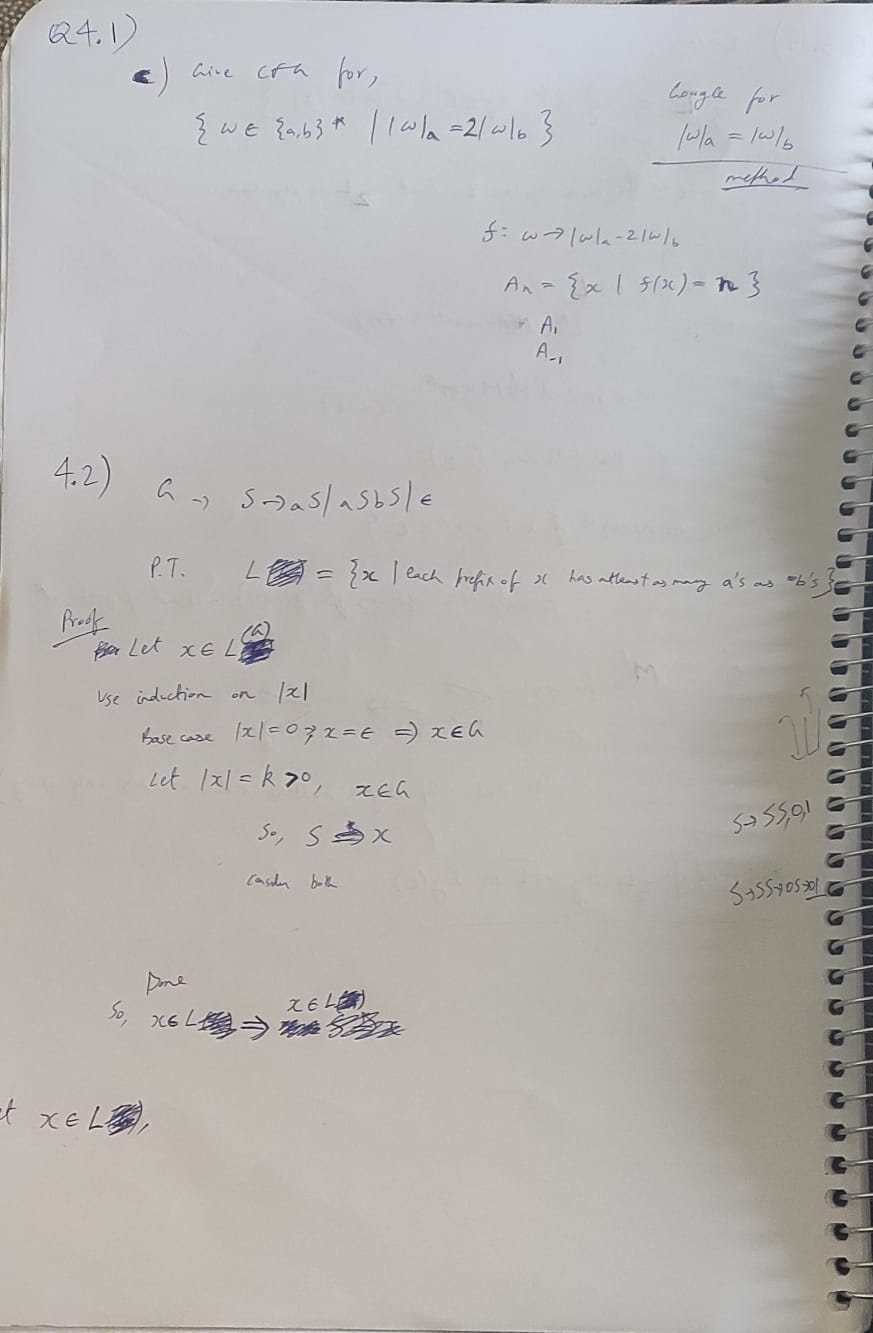 Q4.1)
c) Give CFG for,
{ w ∈ {a,b}* | |w|a = 2|w|b }
Google for
|w|a = |w|b
method
f: w → |w|a - 2|w|b
An = {x | f(x) = n }
A1
A-1
4.2) G → S→aS|aSbS|ϵ
P.T. L = {x | each prefix of x has atleast as many a's as b's}
Proof
Let x ∈ L(G)
Use induction on |x|
Base case |x|=0 ; x = ϵ ⇒ x∈G
Let |x| = k > 0, x∈G
So, S ⇒ x
Consider both
S→SS,0,1
S→SS→0S→01
Done
So, x∈L ⇒ x∈L
x ∈ L ,